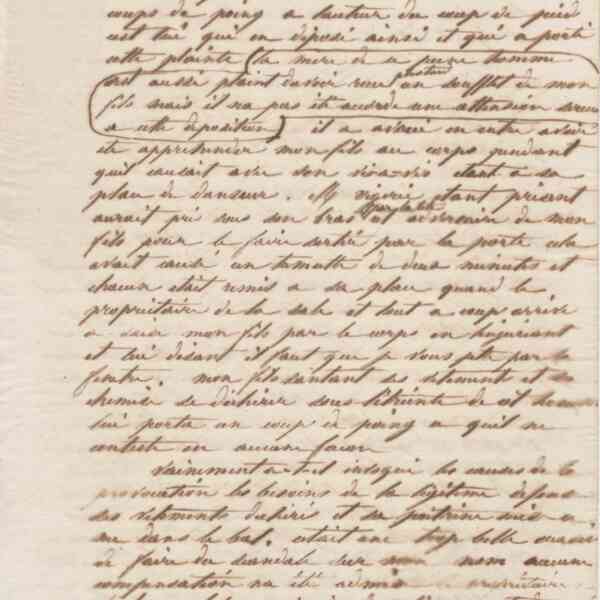 coups de poing a lauteur du coup de pied
est lui qui en déposé ainsi et qui a porté
cette plainte (la mere de ce jeune homme
est aussi plaint davoir recu un soufflet de mon
fils mais il na pas été accordé une attention
a cette deposition) il a avoué en outre avoir
été apprehender mon fils au corps pendant
quil causait avec son vis a vis etant a sa
place de danseur. M vigerie etant présent
aurait pri sous son bras adversaire de mon
fils pour le faire sortir par la porte cela
avait causé un tumulte de deux minutes et
chacun était remis a sa place quand le
propriétaire de la sale et tout a coup arrive
a saisir mon fils par le corps en linjuriant
et lui disant il faut que je vous jete par la
fenetre. mon fils santant ses vetements et sa
chemise se déchirer sous létreinte de cet
lui porta un coup de poing a quil ne
conteste en aucune facon
vainement a-t-il invoqué les causes de la
provocation les besoins de la légitime défense
ses vetements déchirés et sa poitrine mise a
nue dans le bal. cetait une trop belle
de faire du scandale sur mon nom aucune
compensation na été admise propriétaire